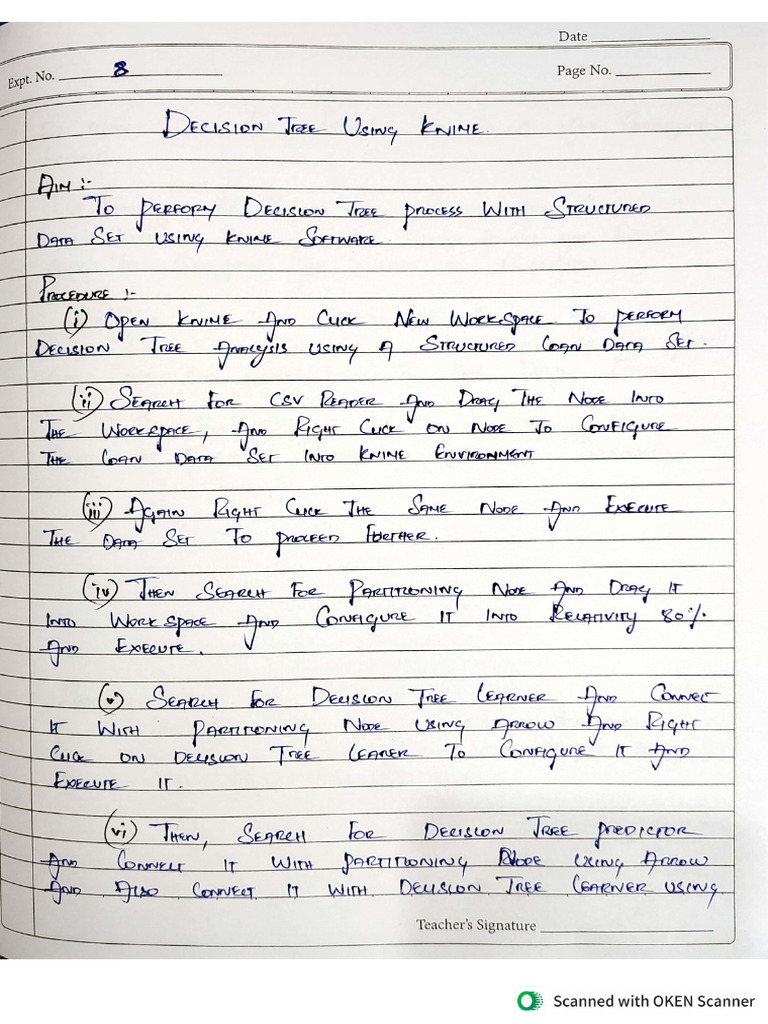 Date
Expt. No. 8
Page No.
DECISION TREE USING KNIME.
AIM :-
TO PERFORM DECISION TREE PROCESS WITH STRUCTURED
DATA SET USING KNIME SOFTWARE.
PROCEDURE :-
(i) OPEN KNIME AND CLICK NEW WORKSPACE TO PERFORM
DECISION TREE ANALYSIS USING A STRUCTURED LOAN DATA SET.
(ii) SEARCH FOR CSV READER AND DRAG THE NODE INTO
THE WORKSPACE, AND RIGHT CLICK ON NODE TO CONFIGURE
THE LOAN DATA SET INTO KNIME ENVIRONMENT
(iii) AGAIN RIGHT CLICK THE SAME NODE AND EXECUTE
THE DATA SET TO PROCEED FURTHER.
(iv) THEN SEARCH FOR PARTITIONING NODE AND DRAG IT
INTO WORKSPACE AND CONFIGURE IT INTO RELATIVITY 80%
AND EXECUTE.
(v) SEARCH FOR DECISION TREE LEARNER AND CONNECT
IT WITH PARTITIONING NODE USING ARROW AND RIGHT
CLICK ON DECISION TREE LEANER TO CONFIGURE IT AND
EXECUTE IT.
(vi) THEN, SEARCH FOR DECISION TREE PREDICTOR
AND CONNECT IT WITH PARTITIONING NODE USING ARROW
AND ALSO CONNECT IT WITH DECISION TREE LEARNER USING
Teacher's Signature
Scanned with OKEN Scanner